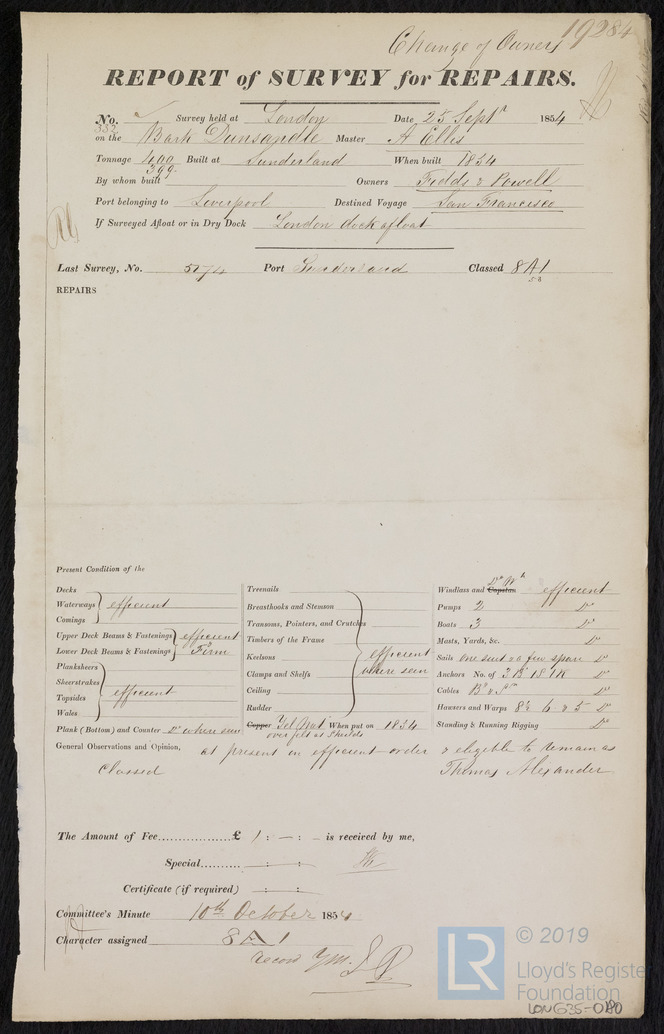 Change of Owners 19284
REPORT of SURVEY for REPAIRS.
No. Survey held at London Date 25 Septr 1854
332
on the Bark Dunsandle Master A Ellis
Tonnage 400 Built at Sunderland When built 1854
399
By whom built Owners Fidds & Powell
Port belonging to Liverpool Destined Voyage San Francisco
If Surveyed Afloat or in Dry Dock London dock afloat
Last Survey, No. 5174 Port Sunderland Classed 8 A1
REPAIRS
Present Condition of the
Decks
Waterways efficient
Comings
Upper Deck Beams & Fastenings efficient
Lower Deck Beams & Fastenings Firm
Planksheers
Sheerstrakes
Topsides efficient
Wales
Plank (Bottom) and Counter Do where seen
Treenails
Breasthooks and Stemson
Transoms, Pointers, and Crutches
Timbers of the Frame
Keelsons efficient
Clamps and Shelfs where seen
Ceiling
Rudder
Copper Yel Mat. When put on 1854
over felt as Sheilds
Windlass and Capstan efficient
Pumps 2 Do
Boats 3 Do
Masts, Yards, &c. Do
Sails one suit & a few spare Do
Anchors No. of 3 B 1 S 1 K Do
Cables Do
Hawsers and Warps 8½ 6 & 5 Do
Standing & Running Rigging Do
General Observations and Opinion, at present in efficient order & eligible to remain as
Classed Thomas Alexander
The Amount of Fee £ 1 : — : — is received by me,
Special : :
Certificate (if required) : :
Committee's Minute 10th October 1854
Character assigned 8 A 1
© 2019
LR
Lloyd's Register
Foundation
LON635-0180